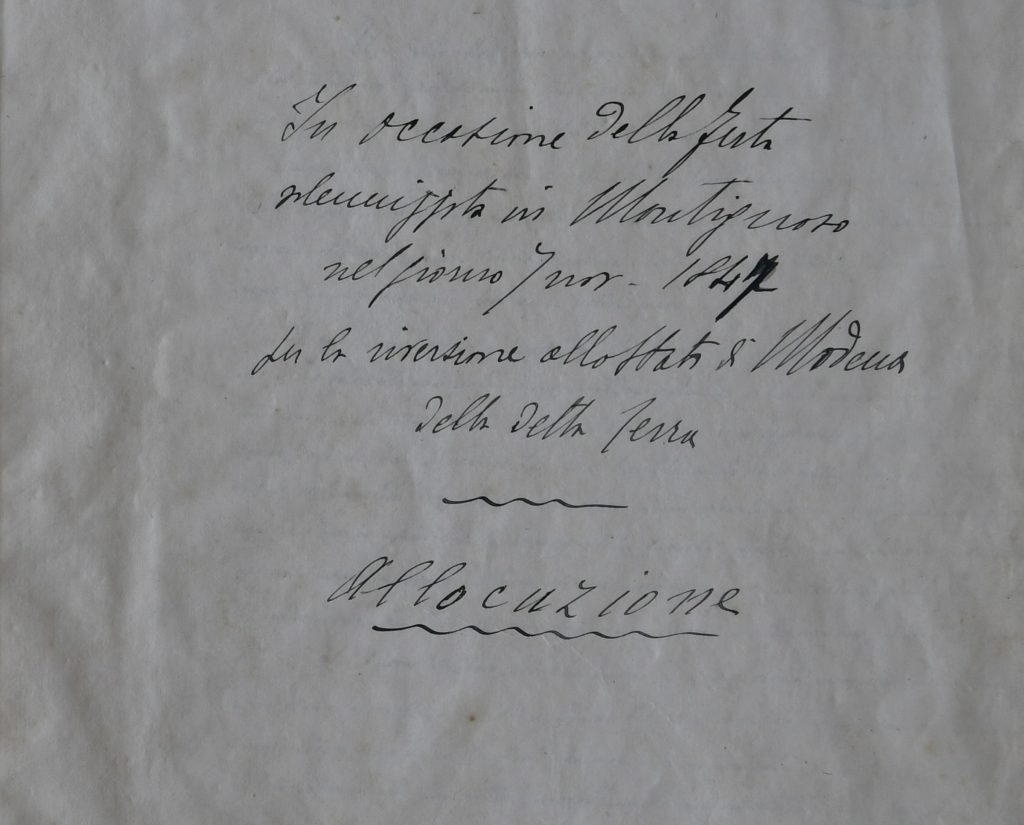 In occasione della festa
solennizzata in Montignoso
nel giorno 7 nov. 1847
per la riversione allo Stato di Modena
della detta Terra
Allocuzione